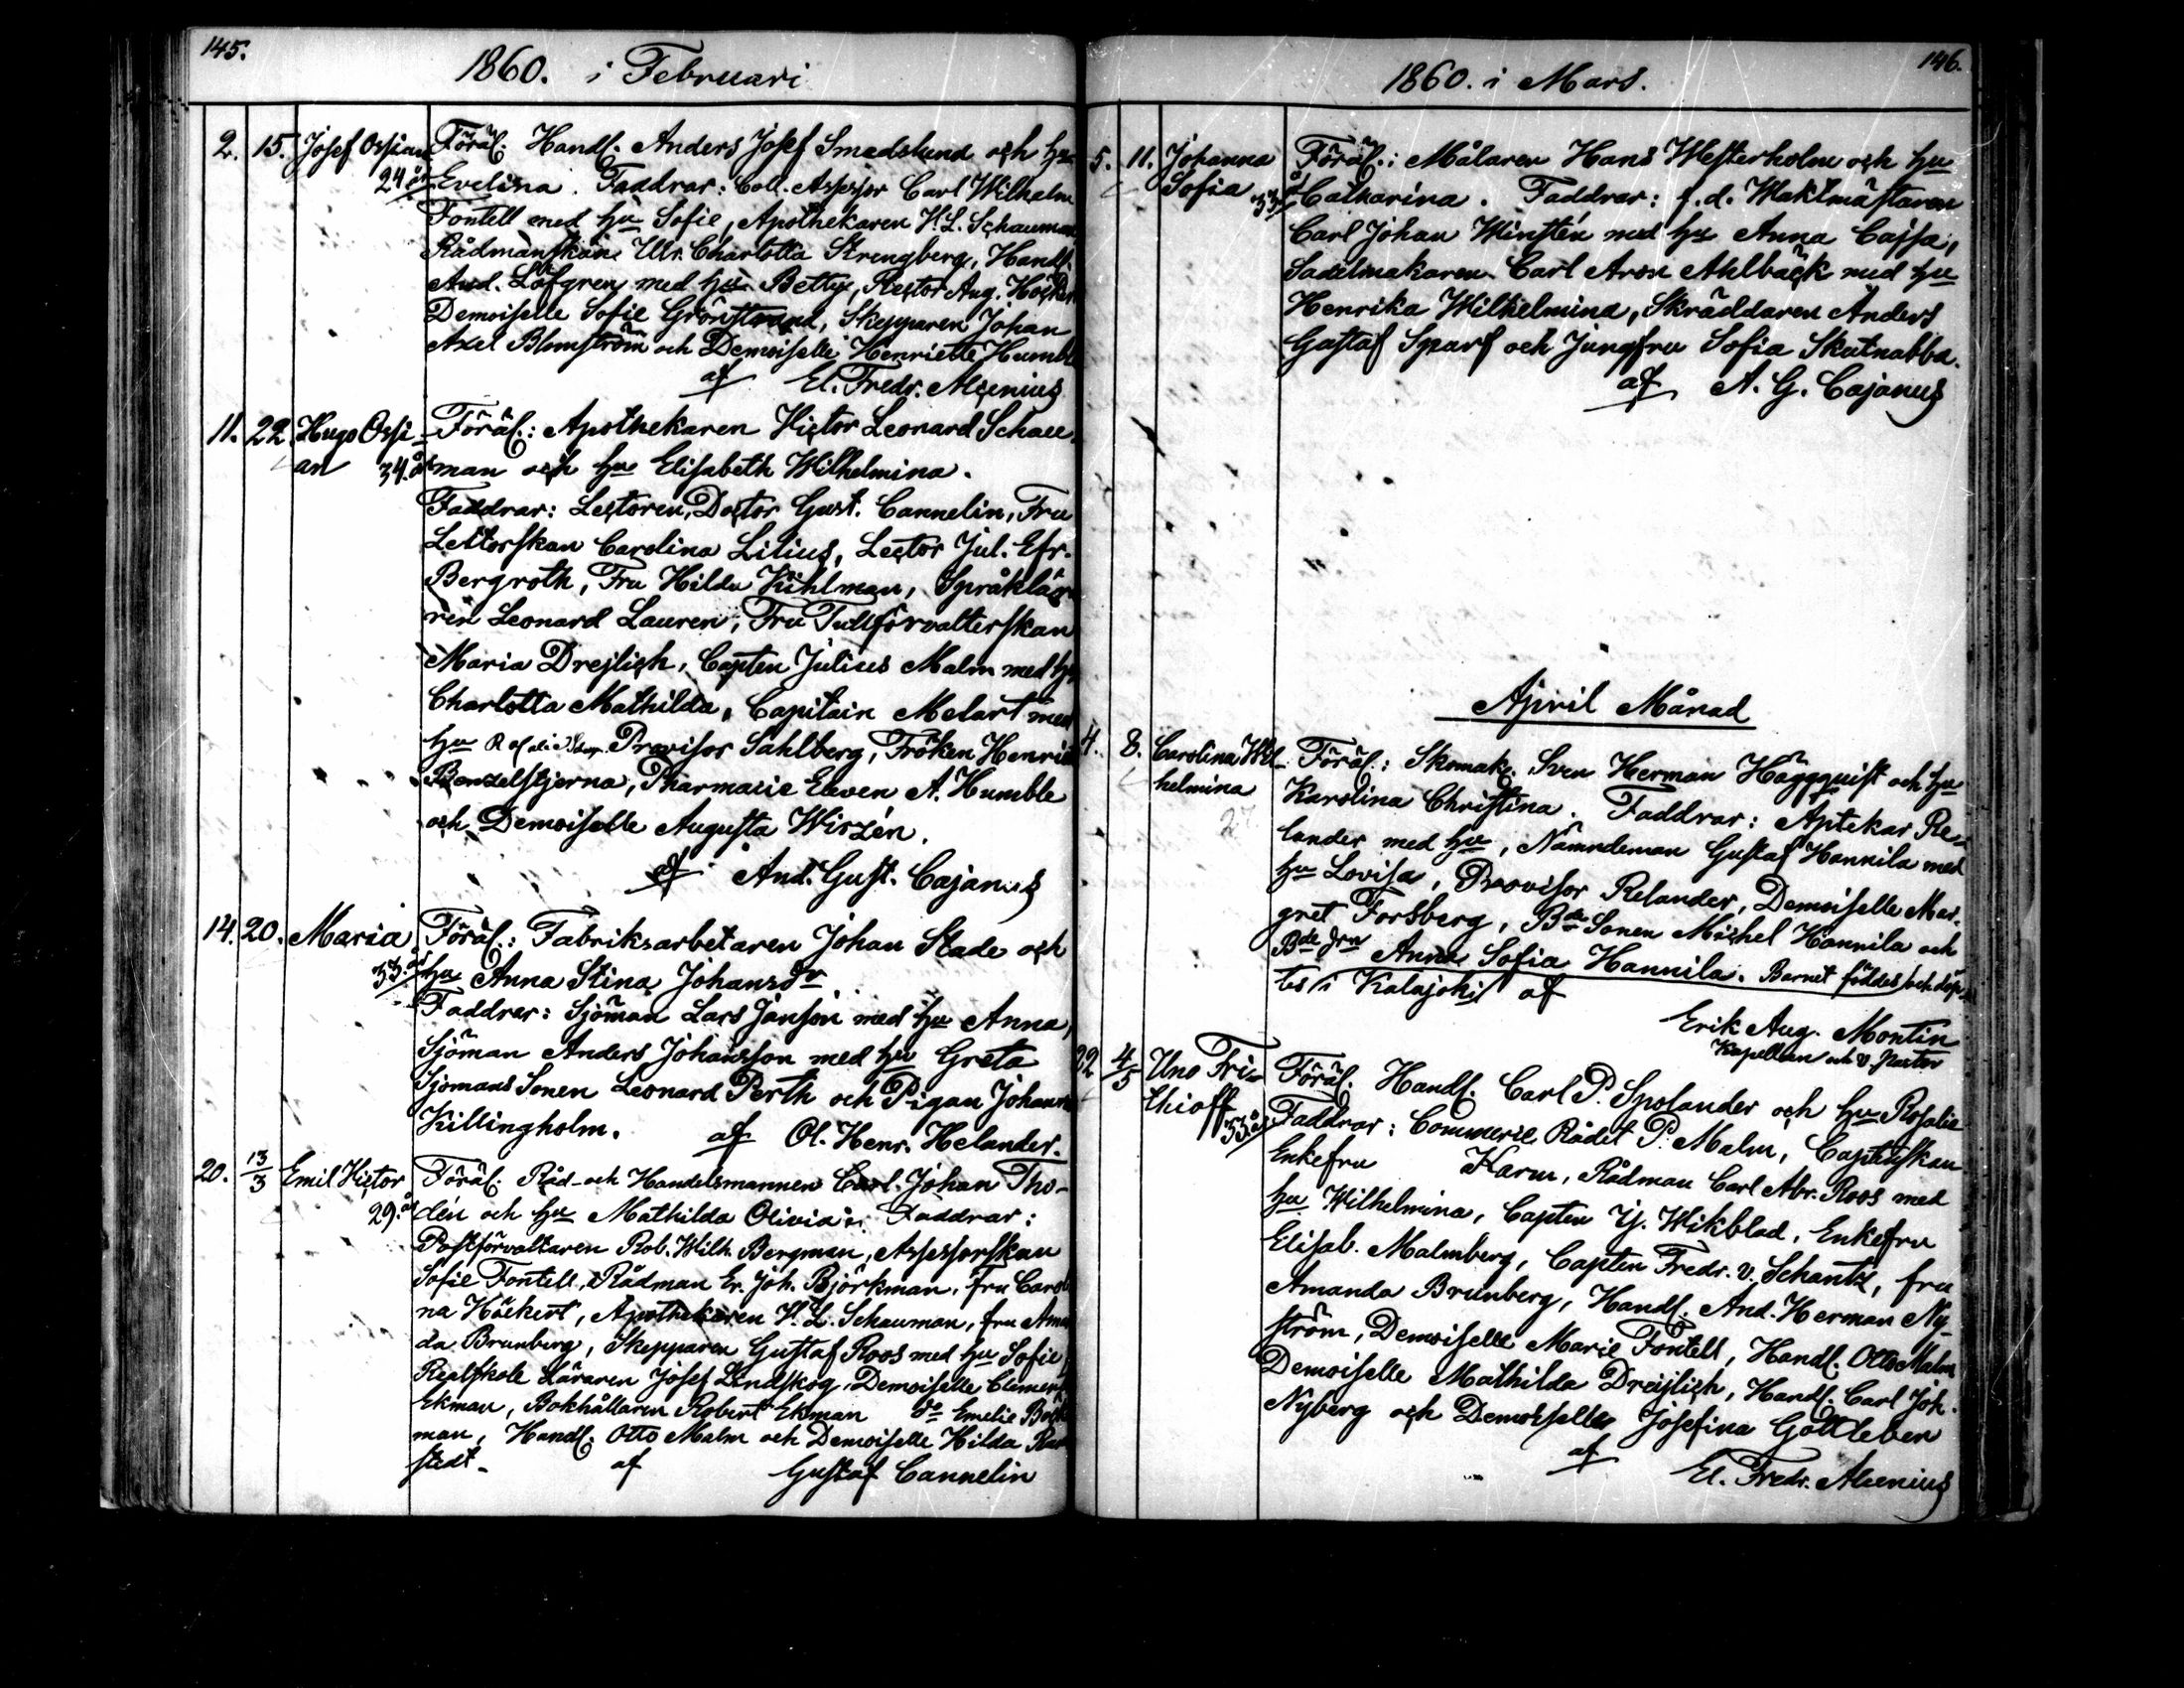 145.
1860. i Februari
2. 15. Josef Ossian Föräl. Handl. Anders Josef Smedslund och hu
24 år Evelina. Faddrar: Coll. Assessor Carl Wilhelm
Fontell med hu Sofie, Apothekaren V. L. Schauman
Rådmanskan Ulr. Charlotta Strengberg, Handl.
And. Löfgren med hu Betty, Rector Aug.
Demoiselle Sofie Grönstrand, Skepparen Johan
Axel Blomström och Demoiselle Henriette Humble
af El. Fredr. Alcenius
11. 22. Hugo Ossi- Föräl.: Apothekaren Victor Leonard Schau-
an 34. år man och hu Elisabeth Wilhelmina.
Faddrar: Lectoren, Doctor Gust. Cannelin, Fru
Lektorskan Carolina Lilius, Lector Jul. Efr.
Bergroth, Fru Hilda Kihlman, Språklära
ren Leonard Lauren, Fru Tullförvalterskan
Maria Drejlich, Capten Julius Malm med hu
Charlotta Mathilda, Capitain Melart med
hu Provisor Sahlberg, Fröken Henri
Benzelstjerna, Pharmacie Eleven A. Humble
och Demoiselle Augusta Wirzén.
af And. Gust. Cajanus
14. 20. Maria Föräl.: Fabriksarbetaren Johan Stade och
33. år hu Anna Stina Johansdr
Faddrar: Sjöman Lars Janson med hu Anna,
Sjöman Anders Johansson med hu Greta
Sjömans Sonen Leonard Perth och Pigan Johanna
Killingholm. af Ol. Henr. Helander.
20. 13/3 Emil Victor Föräl. Råd- och Handelsmannen Carl Johan Tho-
29. år dén och hu Mathilda Olivia. Faddrar:
Postförvaltaren Rob. Wilh. Bergman, Assessorskan
Sofie Fontell, Rådman Er. Joh. Björkman, fru Caroli
na Häckert, Apothekaren V. L. Schauman, fru Aman
da Brunberg, Skepparen Gustaf Roos med hu Sofie,
Realskole Läraren Josef Lindskog, Demoiselle Clement
Ekman, Bokhållaren Robert Ekman do Emelie
man, Handl. Otto Malm och Demoiselle Hilda
stedt. af Gustaf Cannelin
146.
1860. i Mars.
5. 11. Johanna Föräl.: Målaren Hans Westerholm och hu
Sofia 33 år Catharina. Faddrar: f.d. Waktmästaren
Carl Johan Winstén med hu Anna Cajsa,
Sadelmakaren Carl Aron Ahlbäck med hu
Henrika Wilhelmina, Skräddaren Anders
Gustaf Sparf och Jungfru Sofia Skutnabba.
af A. G. Cajanus
April Månad
4. 8. Carolina Wil- Föräl.: Skomak. Sven Herman Häggquist och hu
helmina Karolina Christina. Faddrar: Aptekar Re-
27 lander med hu, Nämndeman Gustaf Hannila med
hu Lovisa, Provisor Relander, Demoiselle Mar-
gret Forsberg, Bde Sonen Michel Hannila och
Bde Drn Anna Sofia Hannila. Barnet föddes och döp-
tes i Kalajoki af
Erik Aug. Montin
Kapellan och v. Pastor
22 4/5 Uno Fri- Föräl. Handl. Carl P. Spolander och hu Rosalie
thioff 33 år Faddrar: Commerce Rådet P. Malm, Captenskan
Enkefru Karm, Rådman Carl Abr. Roos med
hu Wilhelmina, Capten Y. Wikblad, Enkefru
Elisab. Malmberg, Capten Fredr. v. Schantz, fru
Amanda Brunberg, Handl. And. Herman Ny-
ström, Demoiselle Marie Fontell, Handl. Otto Malm
Demoiselle Mathilda Drejlich, Handl. Carl Joh.
Nyberg och Demoiselle Josefina Gottleben
af El. Fredr. Alcenius